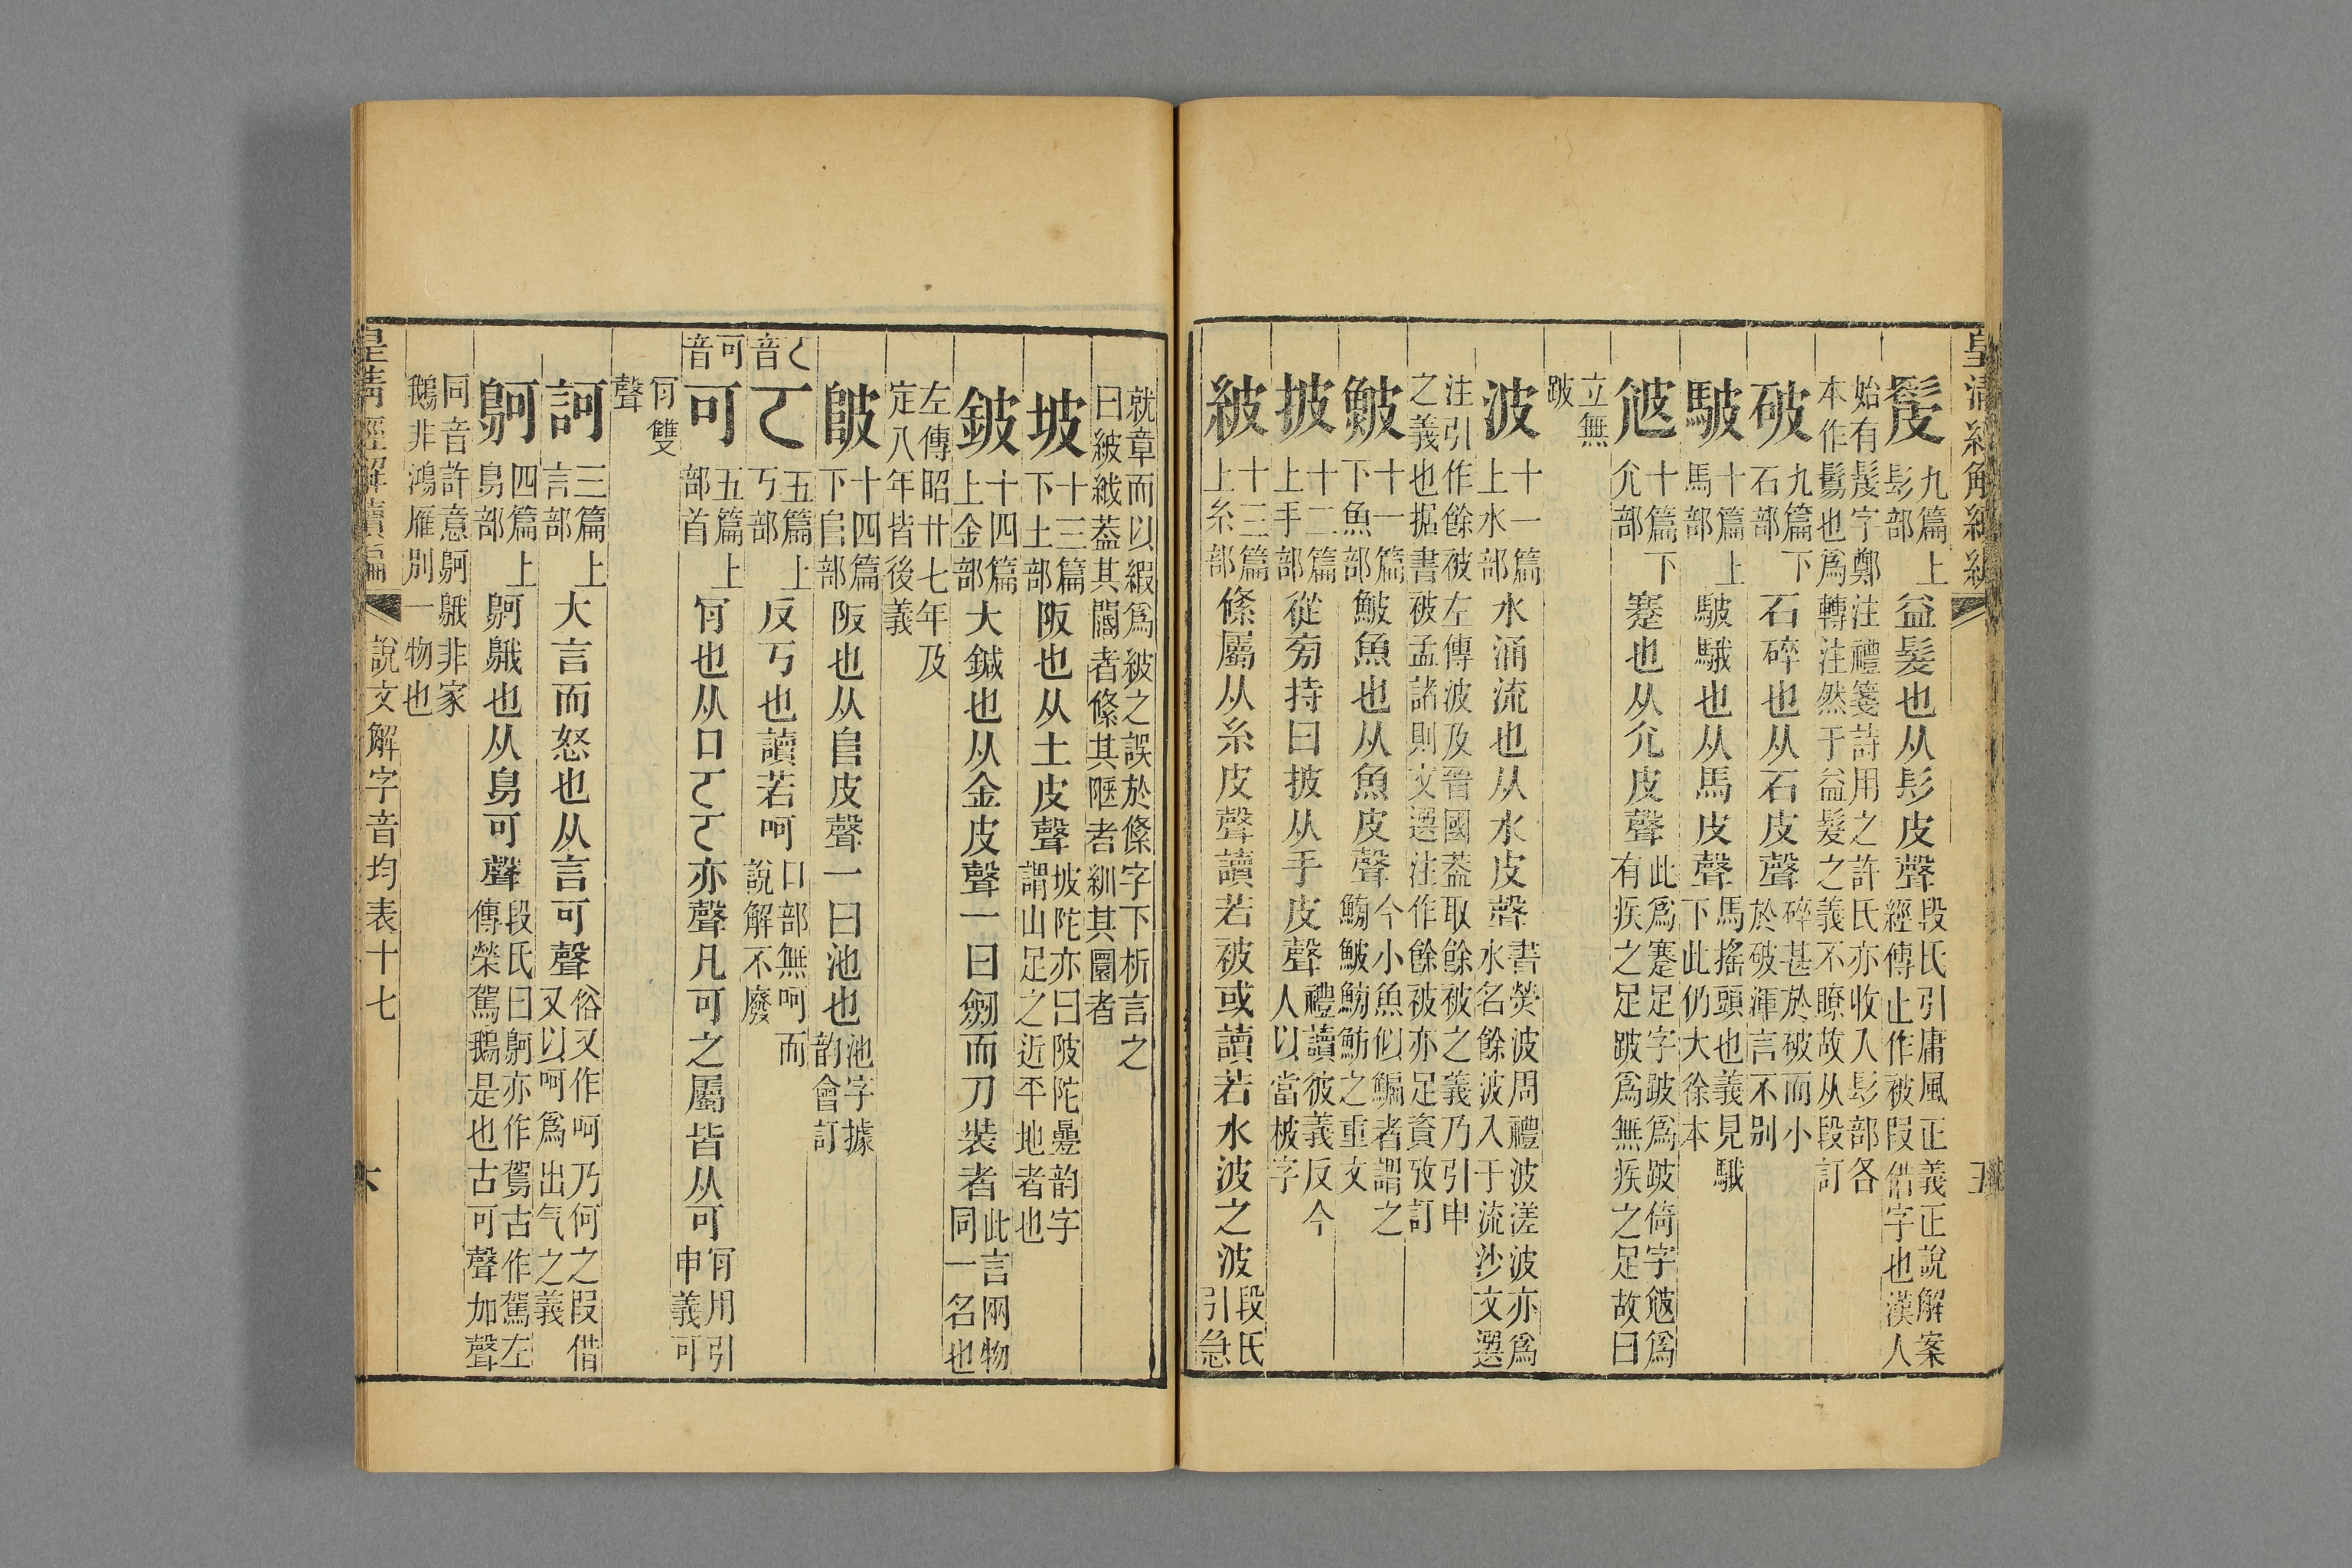 皇清經解續編
五
髲九篇上髟部益髮也从髟皮聲段氏引庸風正義正說解案經傳止作被叚借字也漢人
始有髲字鄭注禮箋詩用之許氏亦收入髟部各本作鬄也爲轉注然于益髮之義不瞭故从段訂
破九篇下石部石碎也从石皮聲碎甚於破而小於破渾言不别
駊十篇上馬部駊騀也从馬皮聲馬搖頭也義見騀下此仍大徐本
㝿十篇下尣部蹇也从尣皮聲此爲蹇足字跛爲跛倚字㝿爲有疾之足跛爲無疾之足故曰
立無跛
波十一篇上水部水涌流也从水皮聲書熒波周禮波溠波亦爲水名餘波入于流沙文選
注引作餘被左傳波及晉國葢取餘被之義乃引申之義也据書被孟諸則文選注作餘被亦足資攷訂
鮍十一篇下魚部鮍魚也从魚皮聲今小魚似鯿者謂之鰟鮍鰟魴之重文
披十二篇上手部從旁持曰披从手皮聲禮讀彼義反今人以當柀字
紴十三篇上糸部絛屬从糸皮聲讀若被或讀若水波之波段氏引急
就章而以緞爲紴之誤於絛字下析言之曰紴緎葢其闊者絛其陿者紃其圜者
坡十三篇下土部阪也从土皮聲坡陀亦曰陂陀㬪韵字謂山足之近平地者也
鈹十四篇上金部大鍼也从金皮聲一曰劒而刀裝者此言兩物同一名也
左傳昭廿七年及定八年皆後義
陂十四篇下𨸏部阪也从𨸏皮聲一曰池也池字據韵會訂
𠀀音
𠀀五篇上丂部反丂也讀若呵口部無呵而說解不廢
可音
可五篇上部首肎也从口𠀀𠀀亦聲凡可之屬皆从可肎用引申義可
肎雙聲
訶三篇上言部大言而怒也从言可聲俗又作呵乃何之叚借又以呵爲出气之義
䳗四篇上鳥部䳗䳘也从鳥可聲段氏曰䳗亦作鴐古作駕左傳榮駕鵝是也古可聲加聲
同音許意䳗䳘非家鵝非鴻雁别一物也
皇清經解續編
說文解字音均表十七
六